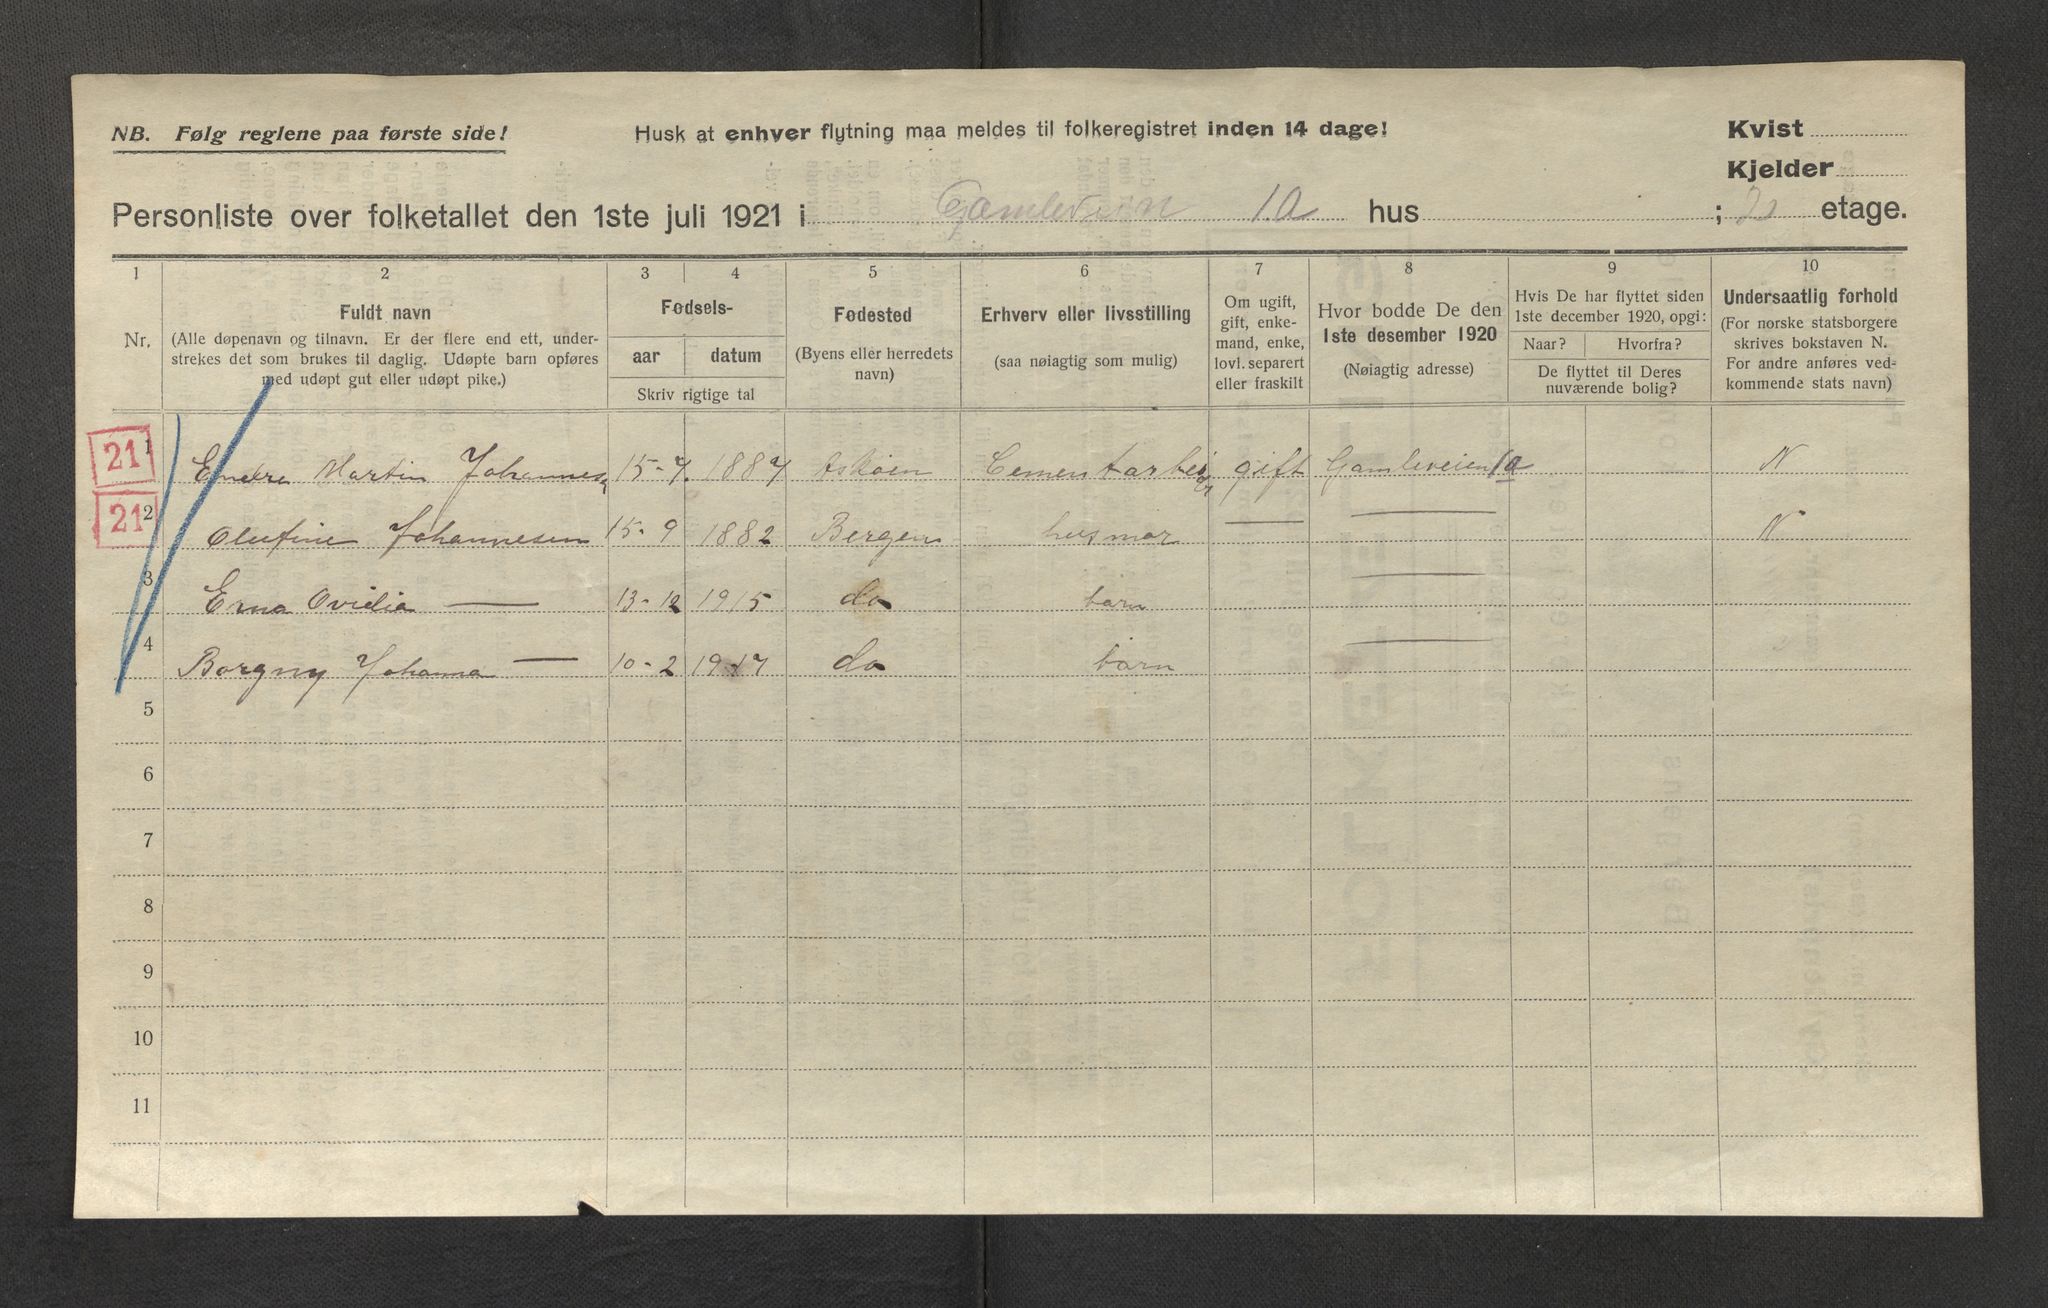 NB. Følg reglene paa første side!
Husk at enhver flytning maa meldes til folkeregistret inden 14 dage!
Kvist
Kjelder
Personliste over folketallet den 1ste juli 1921 i Gamleveien 1A hus ; etage.
1 2 3 4 5 6 7 8 9 10
Nr.
Fuldt navn
(Alle døpenavn og tilnavn. Er der flere end ett, under-
strekes det som brukes til daglig. Udøpte barn opføres
med udøpt gut eller udøpt pike.)
Fødsels-
aar datum
Skriv rigtige tal
Fødested
(Byens eller herredets
navn)
Erhverv eller livsstilling
(saa nøiagtig som mulig)
Om ugift,
gift, enke-
mand, enke,
lovl. separert
eller fraskilt
Hvor bodde De den
1ste desember 1920
(Nøiagtig adresse)
Hvis De har flyttet siden
1ste december 1920, opgi:
Naar? Hvorfra?
De flyttet til Deres
nuværende bolig?
Undersaatlig forhold
(For norske statsborgere
skrives bokstaven N.
For andre anføres ved-
kommende stats navn)
21 1 Endre Martin Johannesen 15-7. 1887 Askøen Cementarbeider gift Gamleveien 1a N
21 2 Olufine Johannesen 15-9 1882 Bergen husmor — — N
3 Erna Ovidia — 13-12 1915 do barn —
4 Borgny Johanna — 10-2 1917 do barn —
5
6
7
8
9
10
11